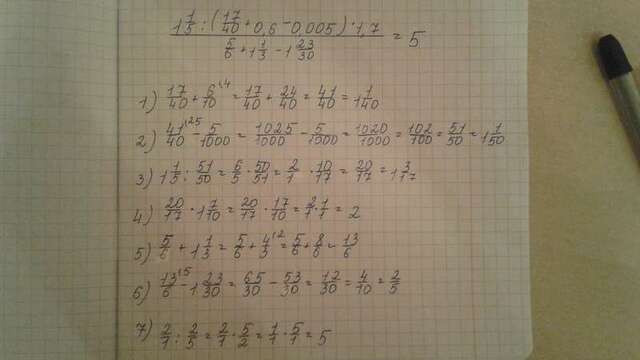 1 1/5 : (17/40 + 0,6 - 0,005) · 1,7
5/6 + 1 1/3 - 1 23/30 = 5
1) 17/40 + 6/10 \4 = 17/40 + 24/40 = 41/40 = 1 1/40
2) 41/40 \25 - 5/1000 = 1025/1000 - 5/1000 = 1020/1000 = 102/100 = 51/50 = 1 1/50
3) 1 1/5 : 51/50 = 6/5 · 50/51 = 2/1 · 10/17 = 20/17 = 1 3/17
4) 20/17 · 1 7/10 = 20/17 · 17/10 = 2/1 · 1/1 = 2
5) 5/6 + 1 1/3 = 5/6 + 4/3 \2 = 5/6 + 8/6 = 13/6
6) 13/6 \5 - 1 23/30 = 65/30 - 53/30 = 12/30 = 4/10 = 2/5
7) 2/1 : 2/5 = 2/1 · 5/2 = 1/1 · 5/1 = 5